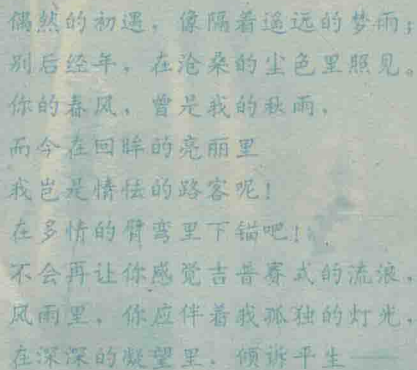 偶然的初遇，像隔着遥远的梦雨；
别后经年，在沧桑的尘色里照见。
你的春风、曾是我的秋雨，
而今在回眸的亮丽里
我岂是情怯的路客呢！
在多情的臂弯里下锚吧！
不会再让你感觉吉普赛式的流浪，
风雨里，你应伴着我孤独的灯光，
在深深的凝望里，倾诉平生——